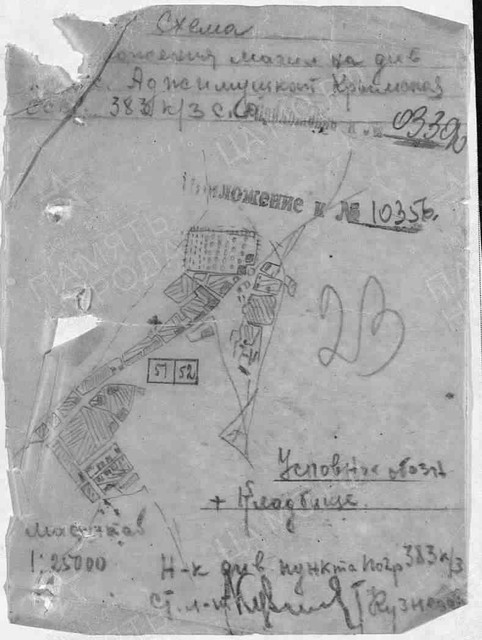 Схема
ожения могил на див
с. Аджимушкай Крымская
383 к/з с.д.
Приложение к № 0339
Приложение к № 10356.
23
51 52
Условные обозн
+ Кладбище
Масштаб
1:25000
Н-к див пункта погр 383 к/з
ст. л-т Кузнецов